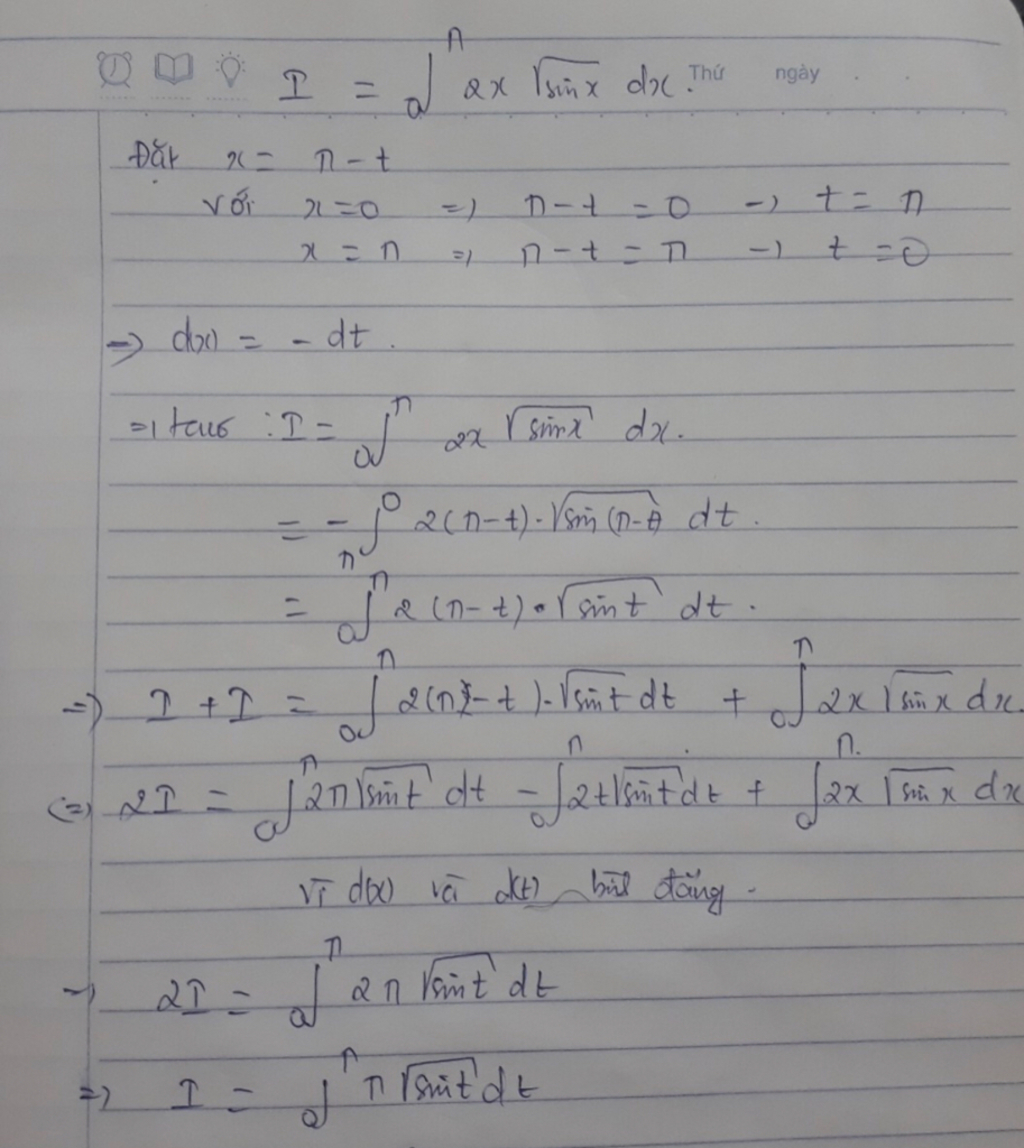 I = ∫₀^π 2x √sin x dx. Thứ ngày
Đặt x = π - t
với x = 0 => π - t = 0 -> t = π
x = π => π - t = π -> t = 0
-> d(x) = - dt.
=> ta có : I = ∫₀^π 2x √sin x dx.
= - ∫_π^0 2(π - t) . √sin (π - t) dt .
= ∫₀^π 2(π - t) . √sin t dt .
=> I + I = ∫₀^π 2(π - t) . √sin t dt + ∫₀^π 2x √sin x dx.
(=) 2I = ∫₀^π 2π √sin t dt - ∫₀^π 2t √sin t dt + ∫₀^π 2x √sin x dx
Vì d(x) và d(t)
-> 2I = ∫₀^π 2π √sin t dt
=> I = ∫₀^π π √sin t dt